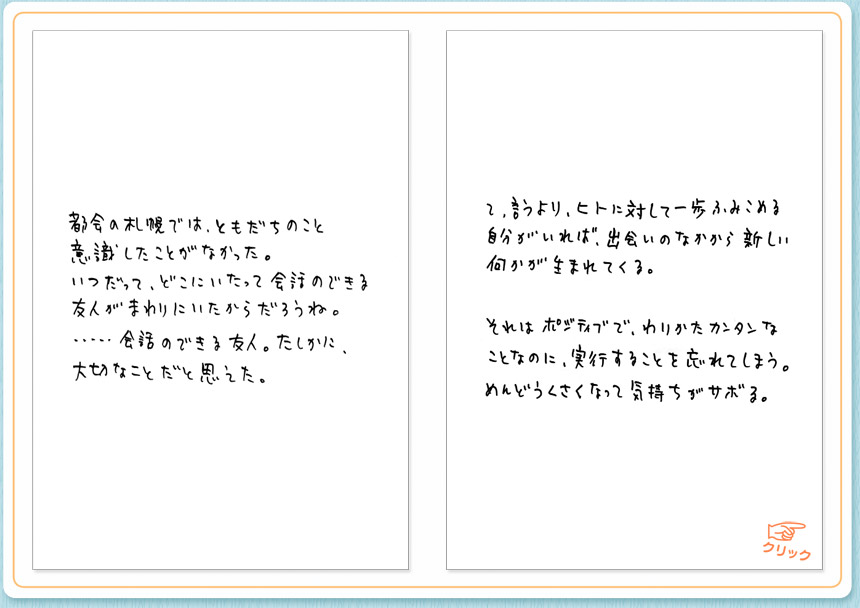 都会の札幌では、ともだちのこと
意識したことがなかった。
いつだって、どこにいたって会話のできる
友人がまわりにいたからだろうね。
……会話のできる友人。たしかに、
大切なことだと思えた。
て、言うより、ヒトに対して一歩ふみこめる
自分がいれば、出会いのなかから新しい
何かが生まれてくる。
それはポジティブで、わりかたカンタンな
ことなのに、実行することを忘れてしまう。
めんどうくさくなって気持ちがサボる。
クリック